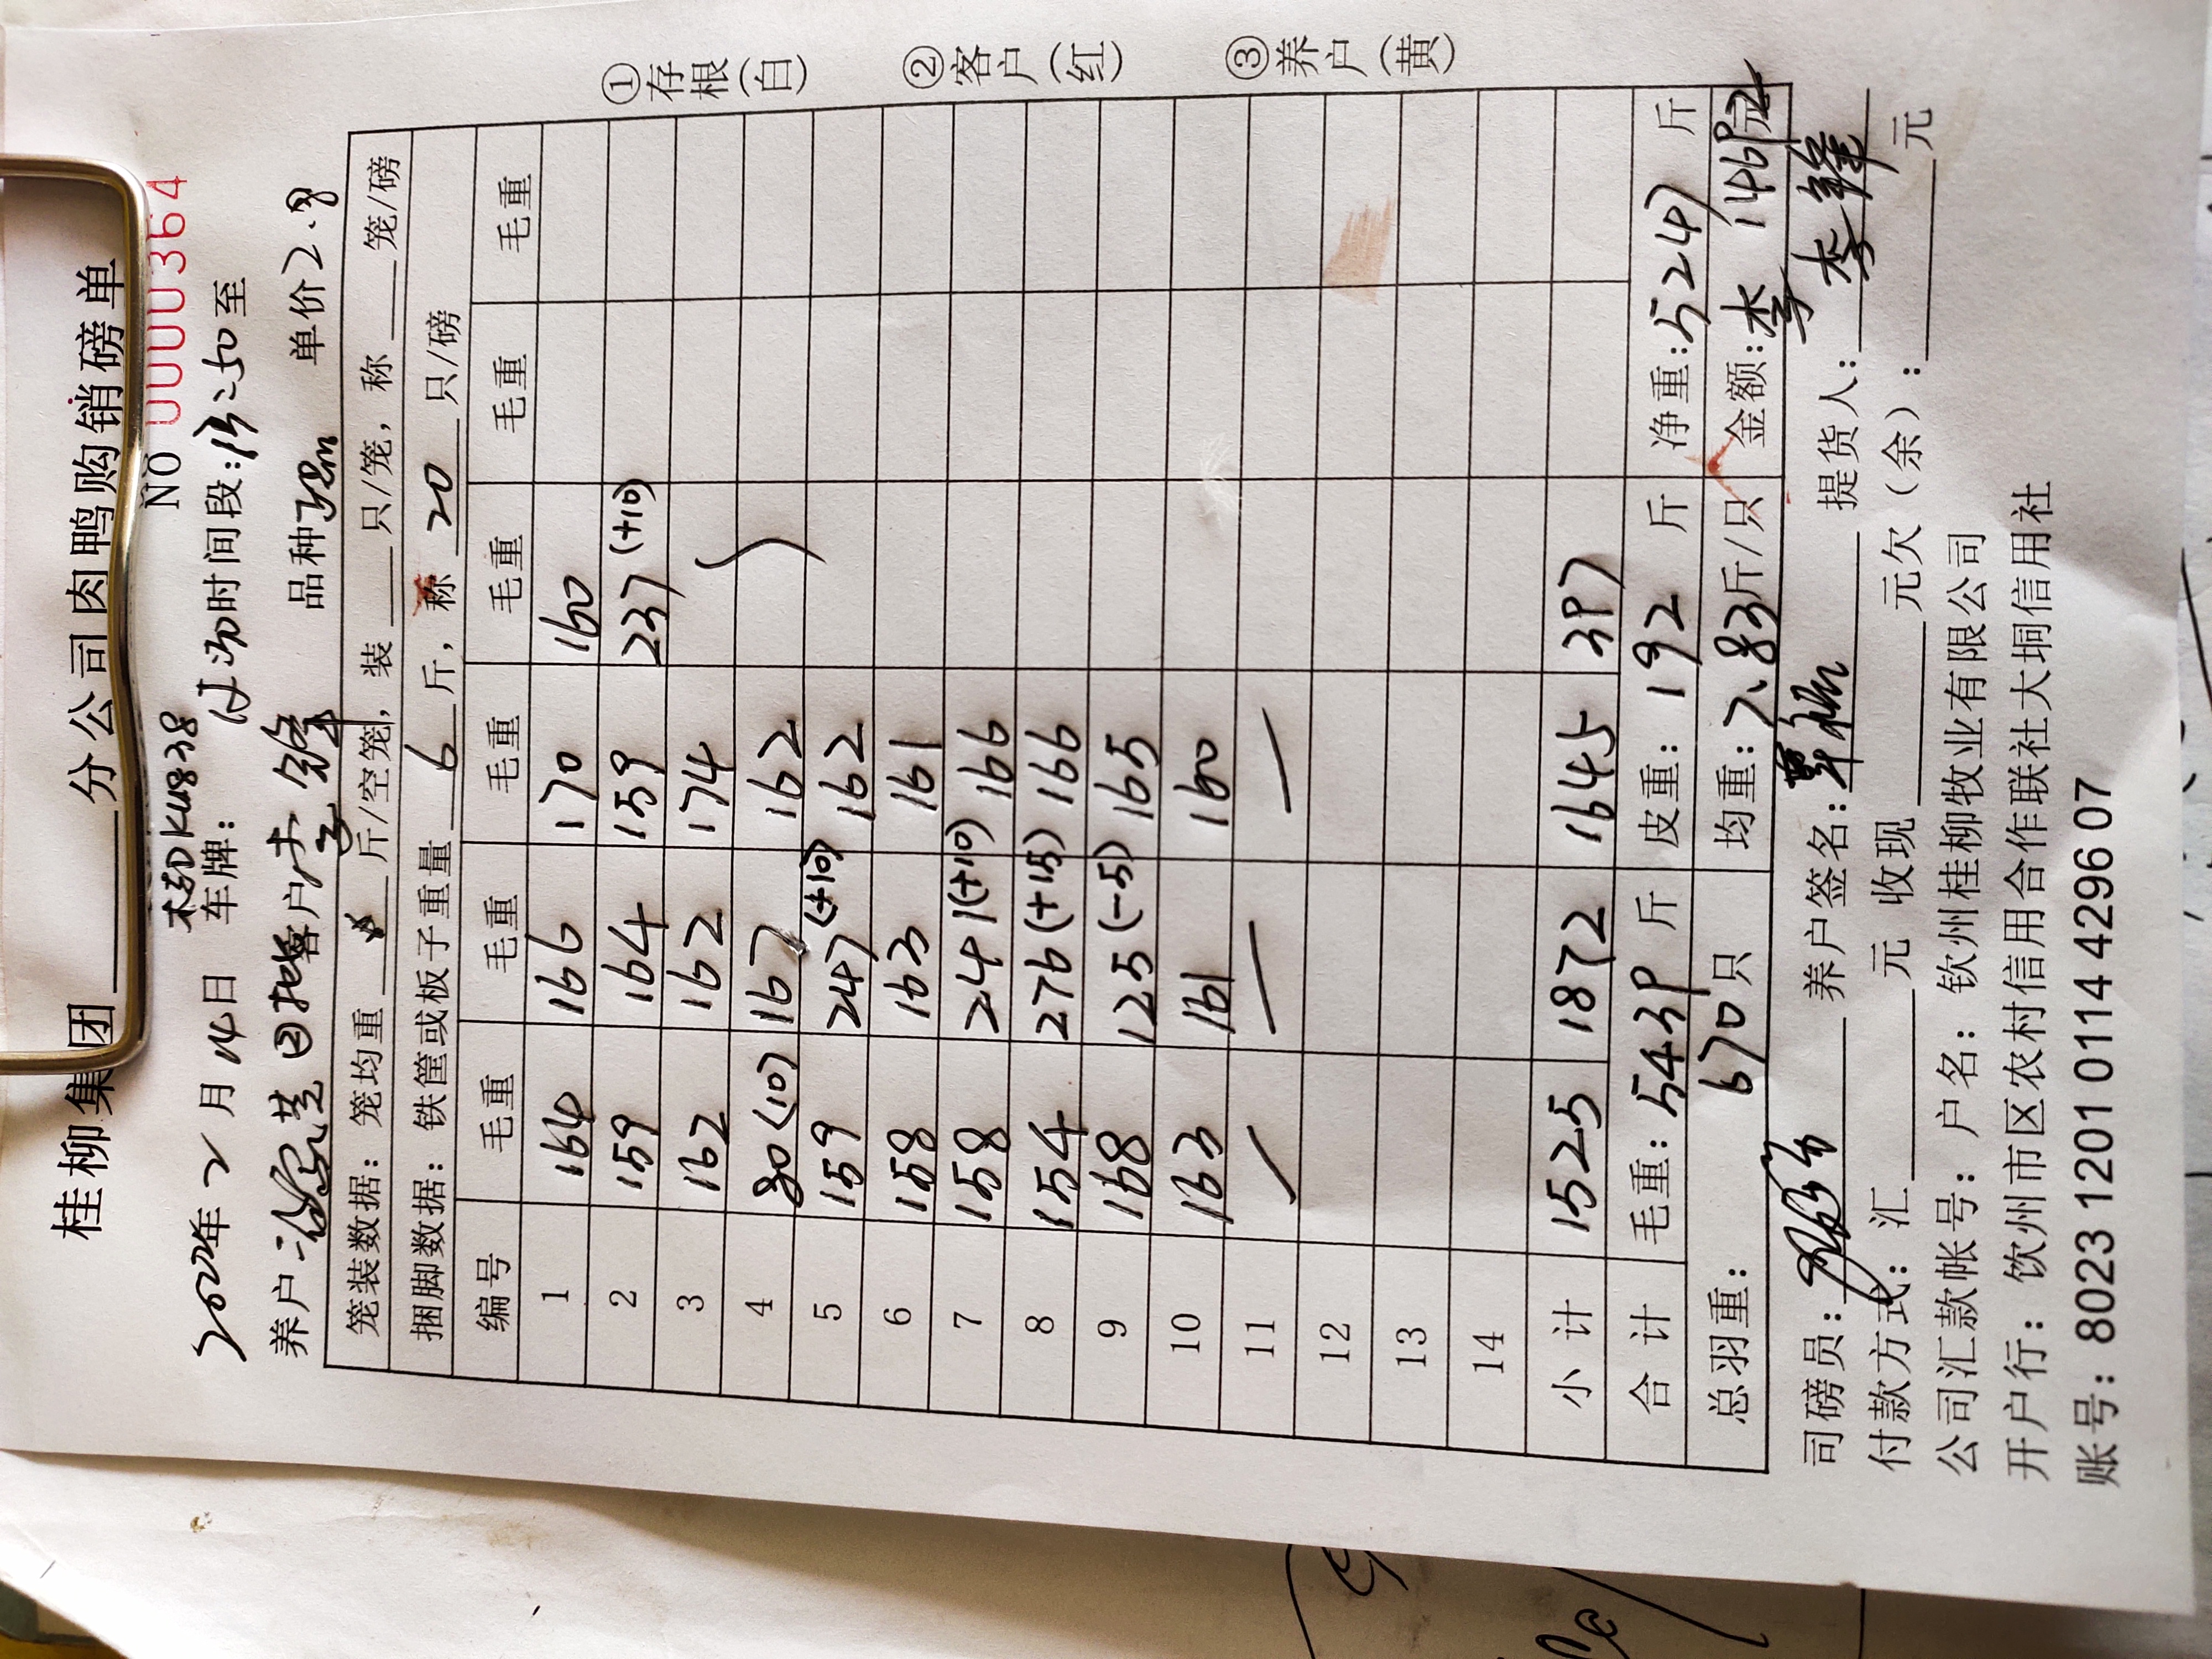 桂柳集团 分公司肉鸭购销磅单
NO 0000364
2022年2月14日 车牌:桂DKU838 时间段:13:50至
养户 客户李锋 品种 单价2.8
笼装数据:笼均重 斤/空笼,装 只/笼,称 笼/磅
捆脚数据:铁筐或板子重量 6 斤,称 20 只/磅
编号 毛重 毛重 毛重 毛重 毛重 毛重
1 164 166 170 160
2 159 164 159 237(+10)
3 162 162 174
4 80(10) 167 162
5 159 247(+10) 162
6 158 163 161
7 158 241(+10) 166
8 154 276(+15) 166
9 168 125(-5) 165
10 163 161 160
11
12
13
14
小计 1525 1872 1645 397
合计 毛重:5439斤 皮重:192斤 净重:5247斤
总羽重:670只 均重:7.83斤/只 金额:李 14692元
司磅员: 养户签名: 提货人:李锋
付款方式:汇 元 收现 元欠(余): 元
公司汇款帐号:户名:钦州桂柳牧业有限公司
开户行:钦州市区农村信用合作联社大垌信用社
账号:8023 1201 0114 4296 07
①存根(白)
②客户(红)
③养户(黄)